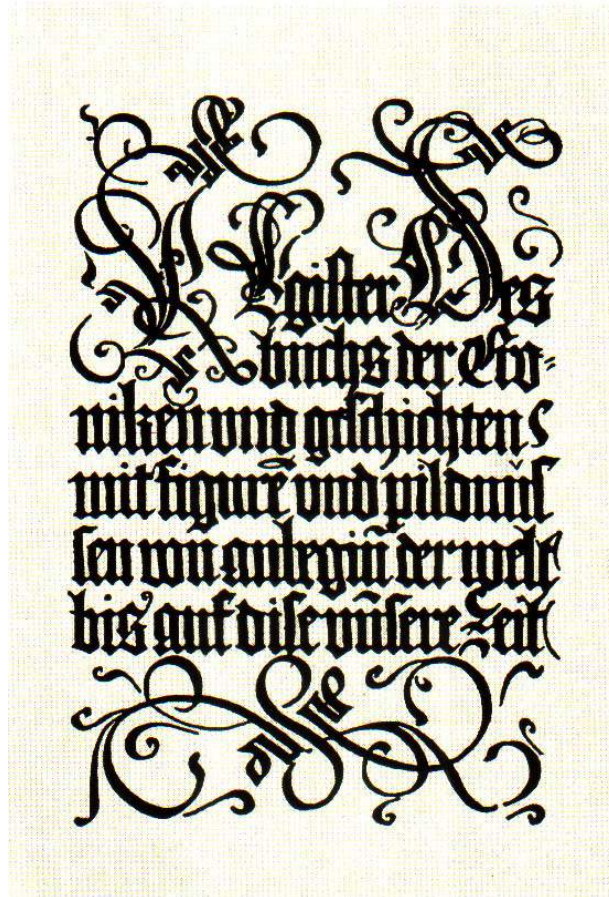 REgister Des
buchs der Cro-
niken vnd geschichten
mit figurē vnd pildnüs
sen von anbegiñ der welt
bis auf dise vnsere Zeit